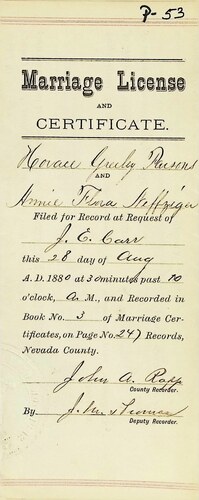 P-53
Marriage License
AND
CERTIFICATE.
Horace Greeley Parsons
AND
Annie Flora
Filed for Record at Request of
J. E. Carr
this 28 day of Aug
A. D. 1880 at 30 minutes past 10
o'clock, a. M., and Recorded in
Book No. 3 of Marriage Cer-
tificates, on Page No. 247 Records,
Nevada County.
John A. Rapp
County Recorder.
By J. M.
Deputy Recorder.